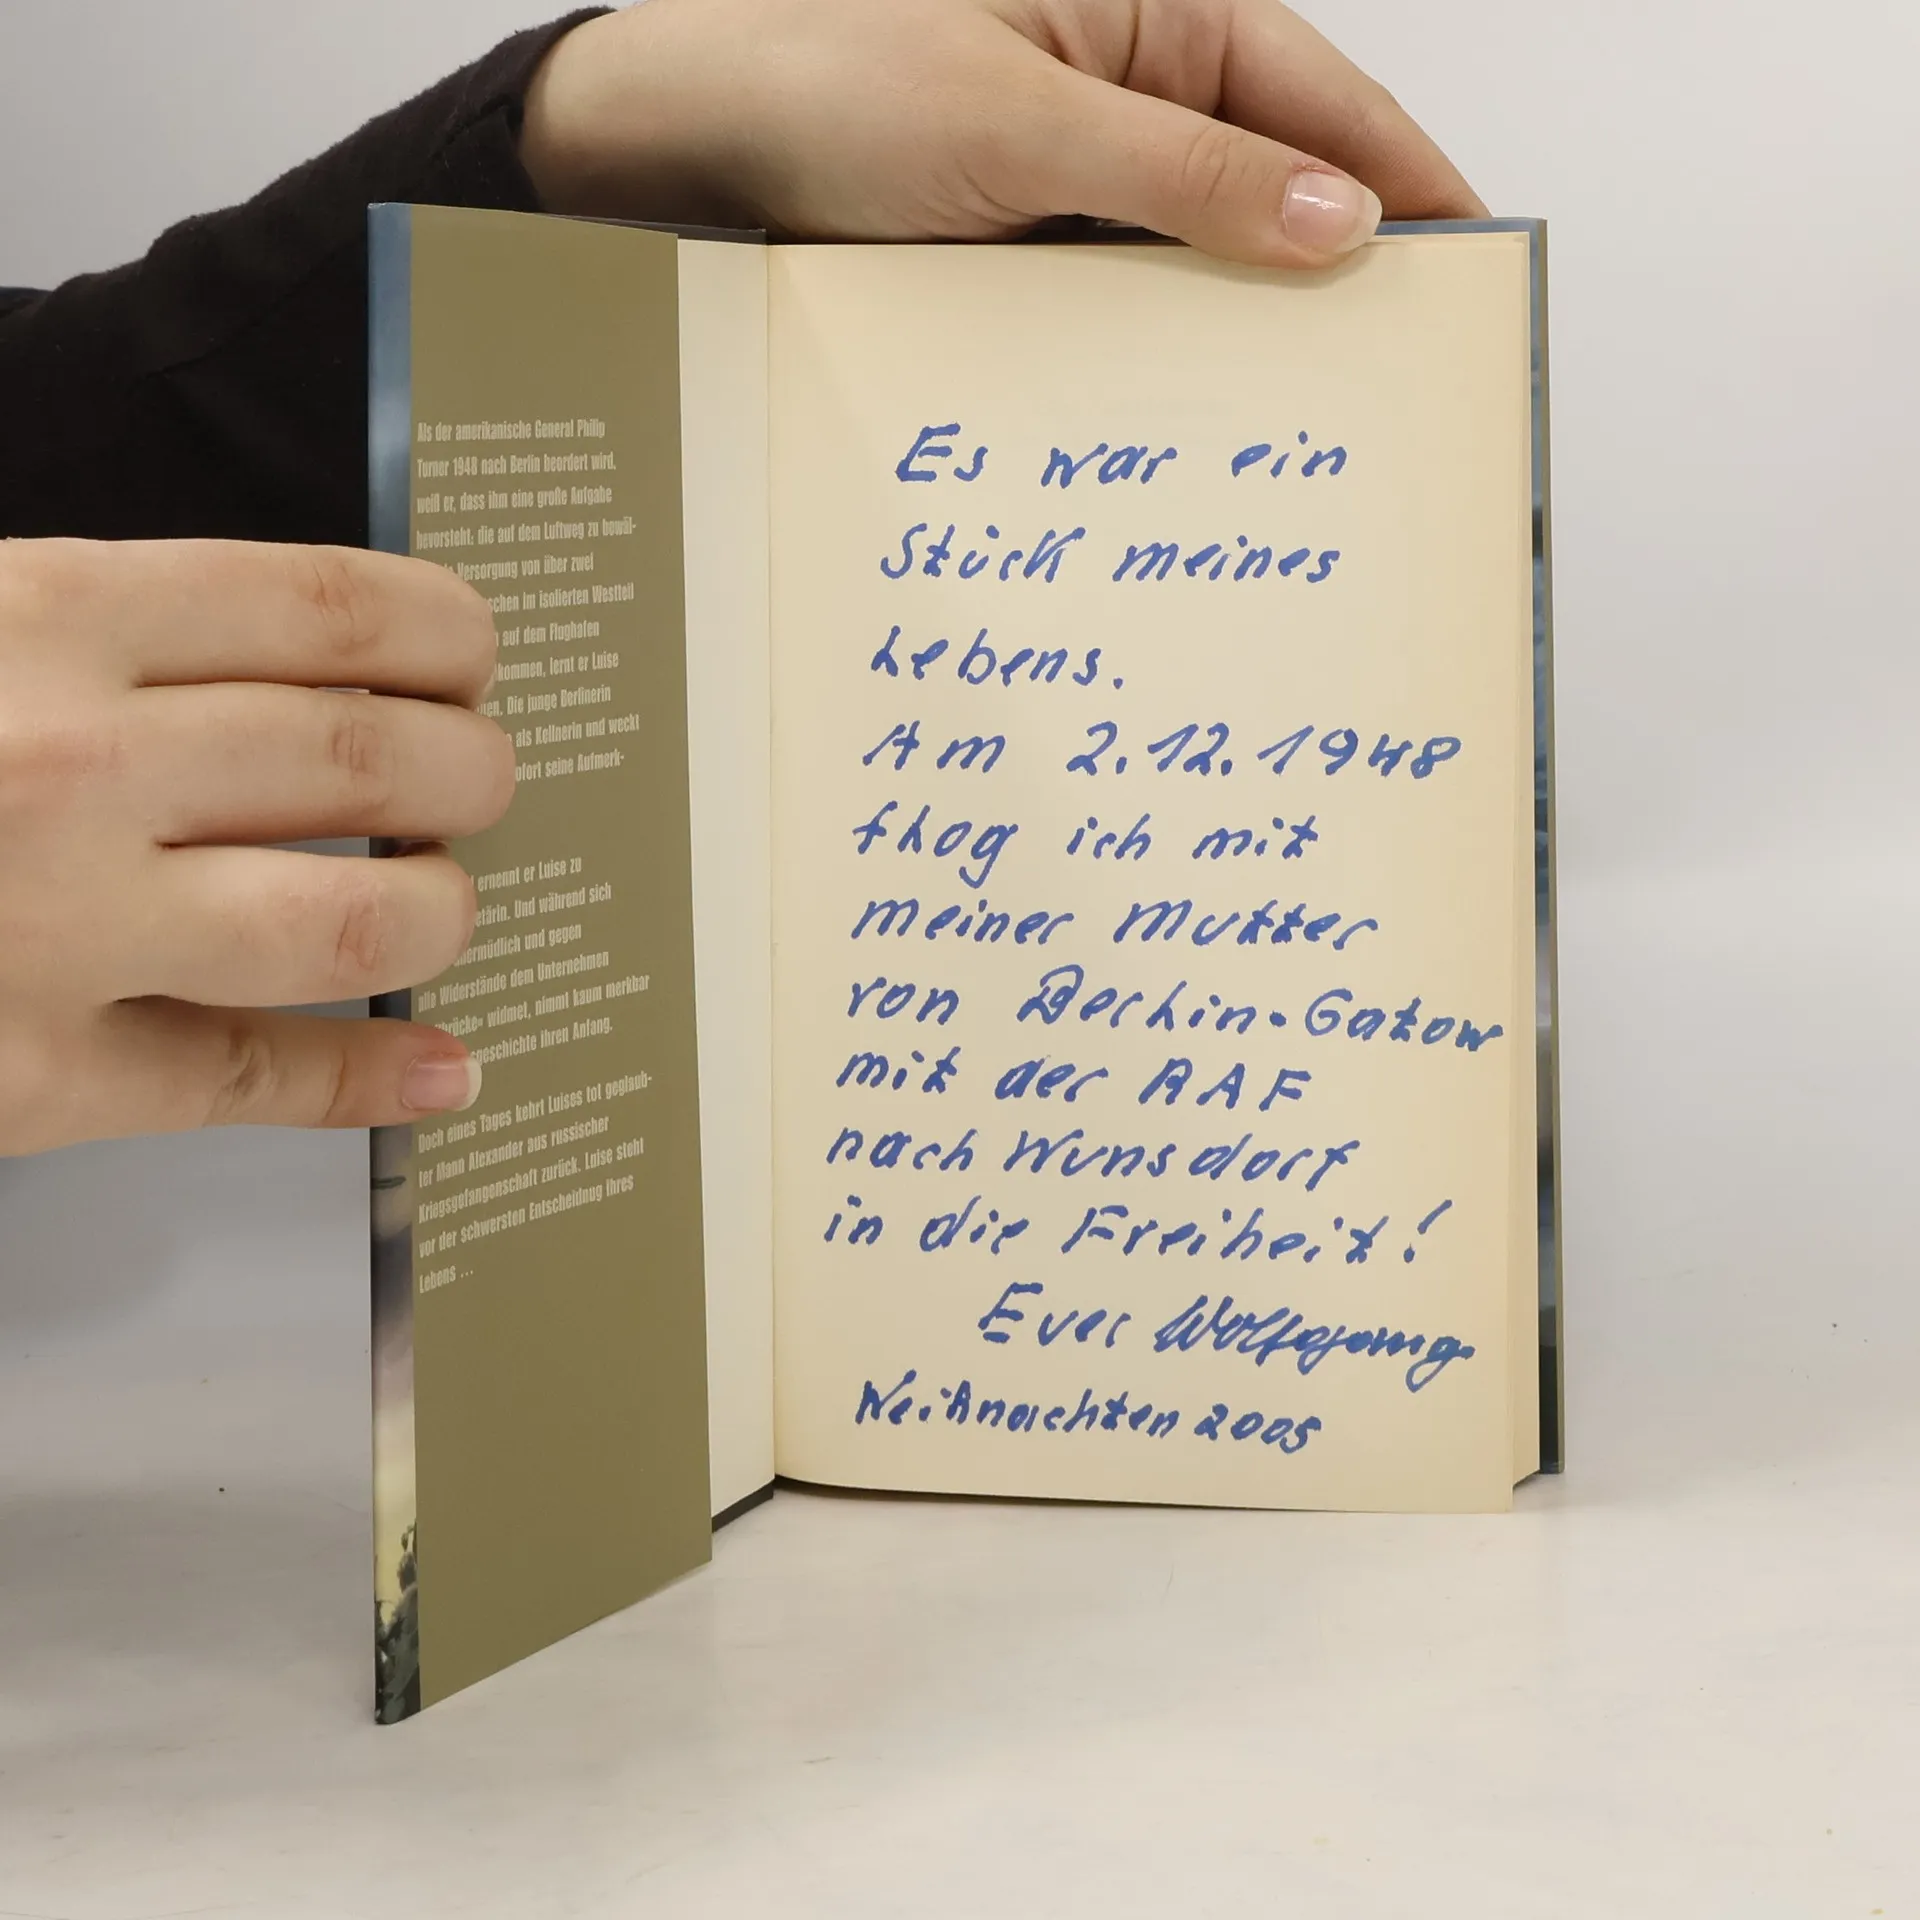 Als der amerikanische General Philip
Turner 1948 nach Berlin beordert wird,
weiß er, dass ihm eine große Aufgabe
bevorsteht: die auf dem Luftweg zu bewäl-
Versorgung von über zwei
schen im isolierten Westteil
auf dem Flughafen
kommen, lernt er Luise
Die junge Berlinerin
als Kellnerin und weckt
ofort seine Aufmerk-
ernennt er Luise zu
etärin. Und während sich
ermüdlich und gegen
alle Widerstände dem Unternehmen
brücke« widmet, nimmt kaum merkbar
geschichte ihren Anfang.
Doch eines Tages kehrt Luises tot geglaub-
ter Mann Alexander aus russischer
Kriegsgefangenschaft zurück. Luise steht
vor der schwersten Entscheidnug ihres
Lebens ...
Es war ein
Stück meines
Lebens.
Am 2.12.1948
flog ich mit
meiner Mutter
von Berlin-Gatow
mit der RAF
nach Wunsdorf
in die Freiheit!
Euer Wolfgang
Weihnachten 2005